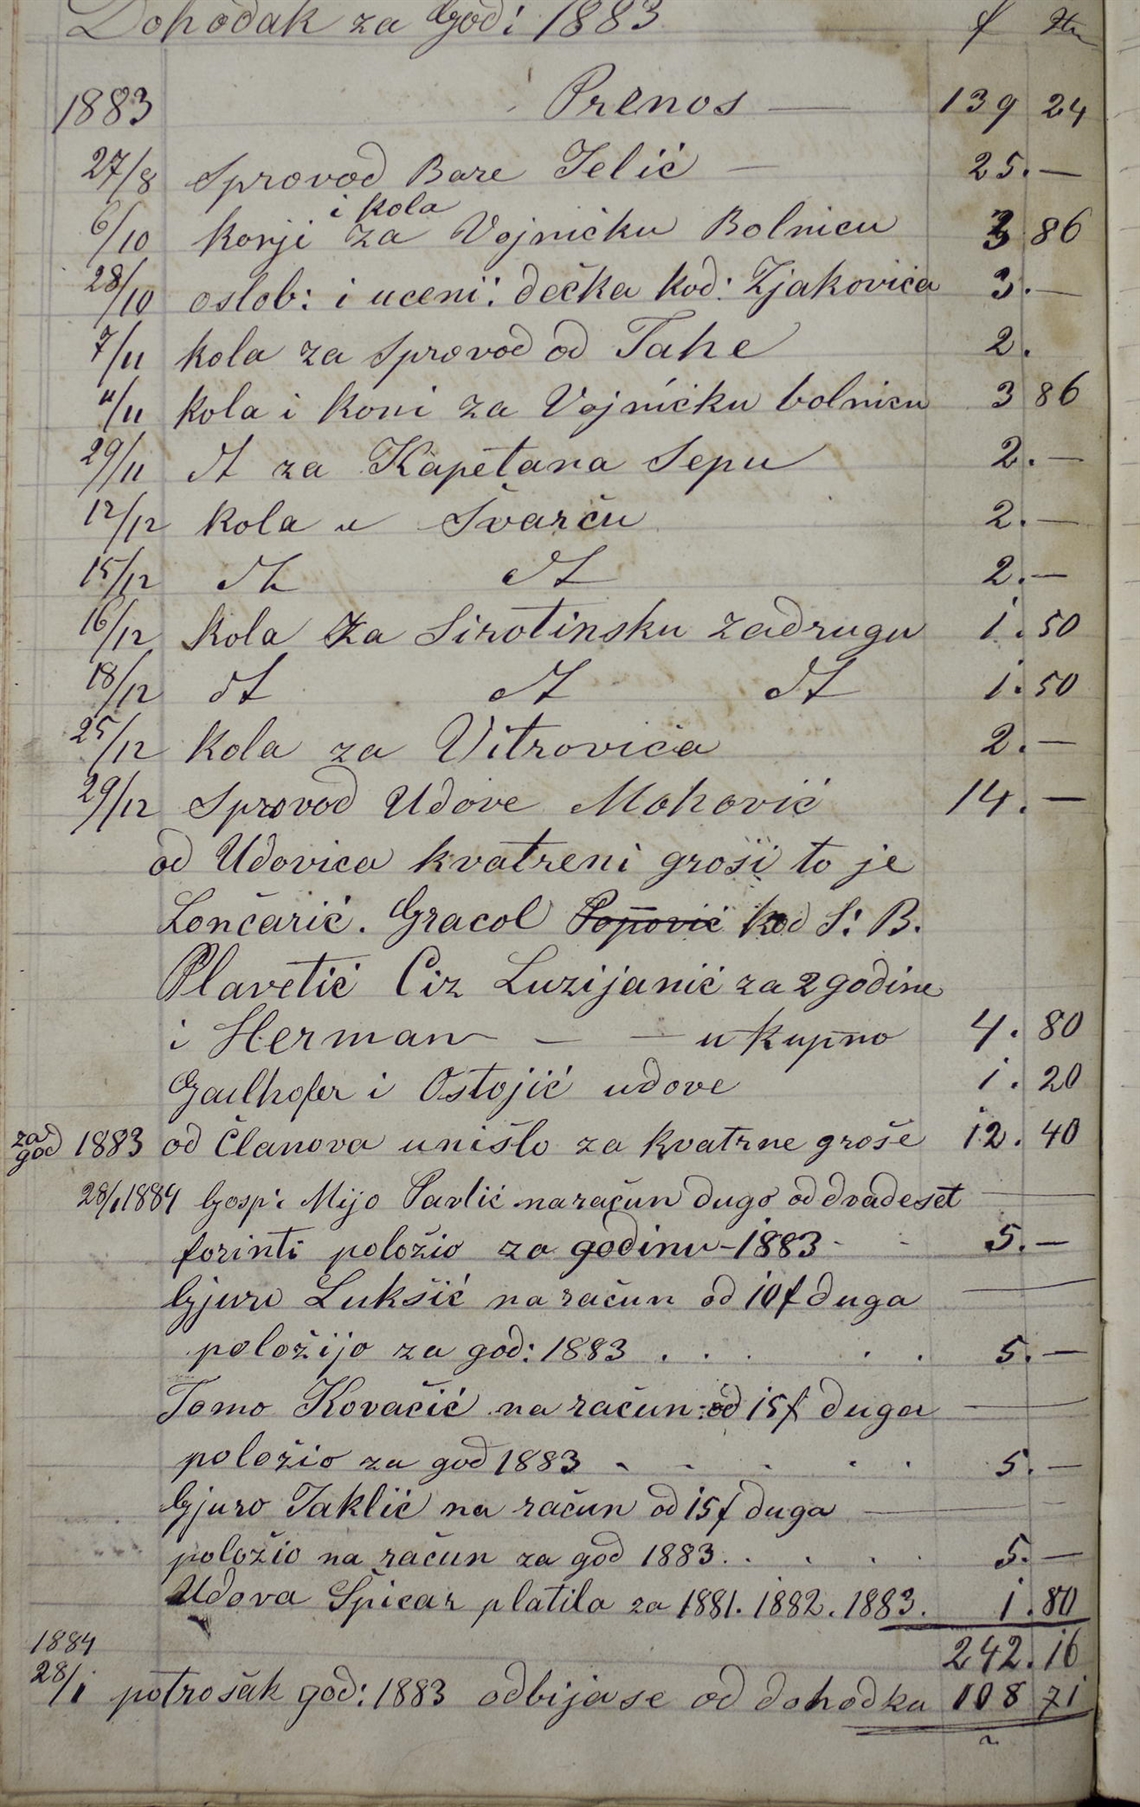 Dohodak za God: 1883 f
1883 Prenos — 139 24
27/8 Sprovod Bare Jelić — 25.—
i kola
6/10 konji za Vojničku Bolnicu 3 86
28/10 oslob: i uceni: dečka kod: Zjakovića 3.—
7/11 kola za Sprovod od Tahe 2.
11/11 kola i koni za Vojničku bolnicu 3 86
29/11 dt za Kapetana Sepu 2.—
12/12 kola u Švarču 2.—
15/12 dt dt 2.—
16/12 kola za Sirotinsku zadrugu 1.50
18/12 dt dt dt 1.50
25/12 kola za Vitrovića 2.—
29/12 Sprovod Udove Mohović 14.—
od Udovica kvatreni groši to je
Lončarić. Gracol Popović kod S: B.
Plavetić Ciz Luzijanić za 2 godine
i Herman — — ukupno 4.80
Gailhofer i Ostojić udove 1.20
za god 1883 od Članova unišlo za kvatrne groše 12.40
28/1 1884 Gosp: Mijo Pavlić na račun dugo od dvadeset —
forinti položio za godinu - 1883 - - 5.—
Gjuro Lukšić na račun od 10 f duga —
položijo za god: 1883 . . . . . 5.—
Tomo Kovačić na račun od 15 f duga —
položio za god 1883 . . . . . 5.—
Gjuro Jaklić na račun od 15 f duga —
položio na račun za god 1883. . . . . 5.—
Udova Špicar platila za 1881. 1882. 1883. 1.80
1884 242.16
28/1 potrošak god: 1883 odbija se od dohodka 108 71